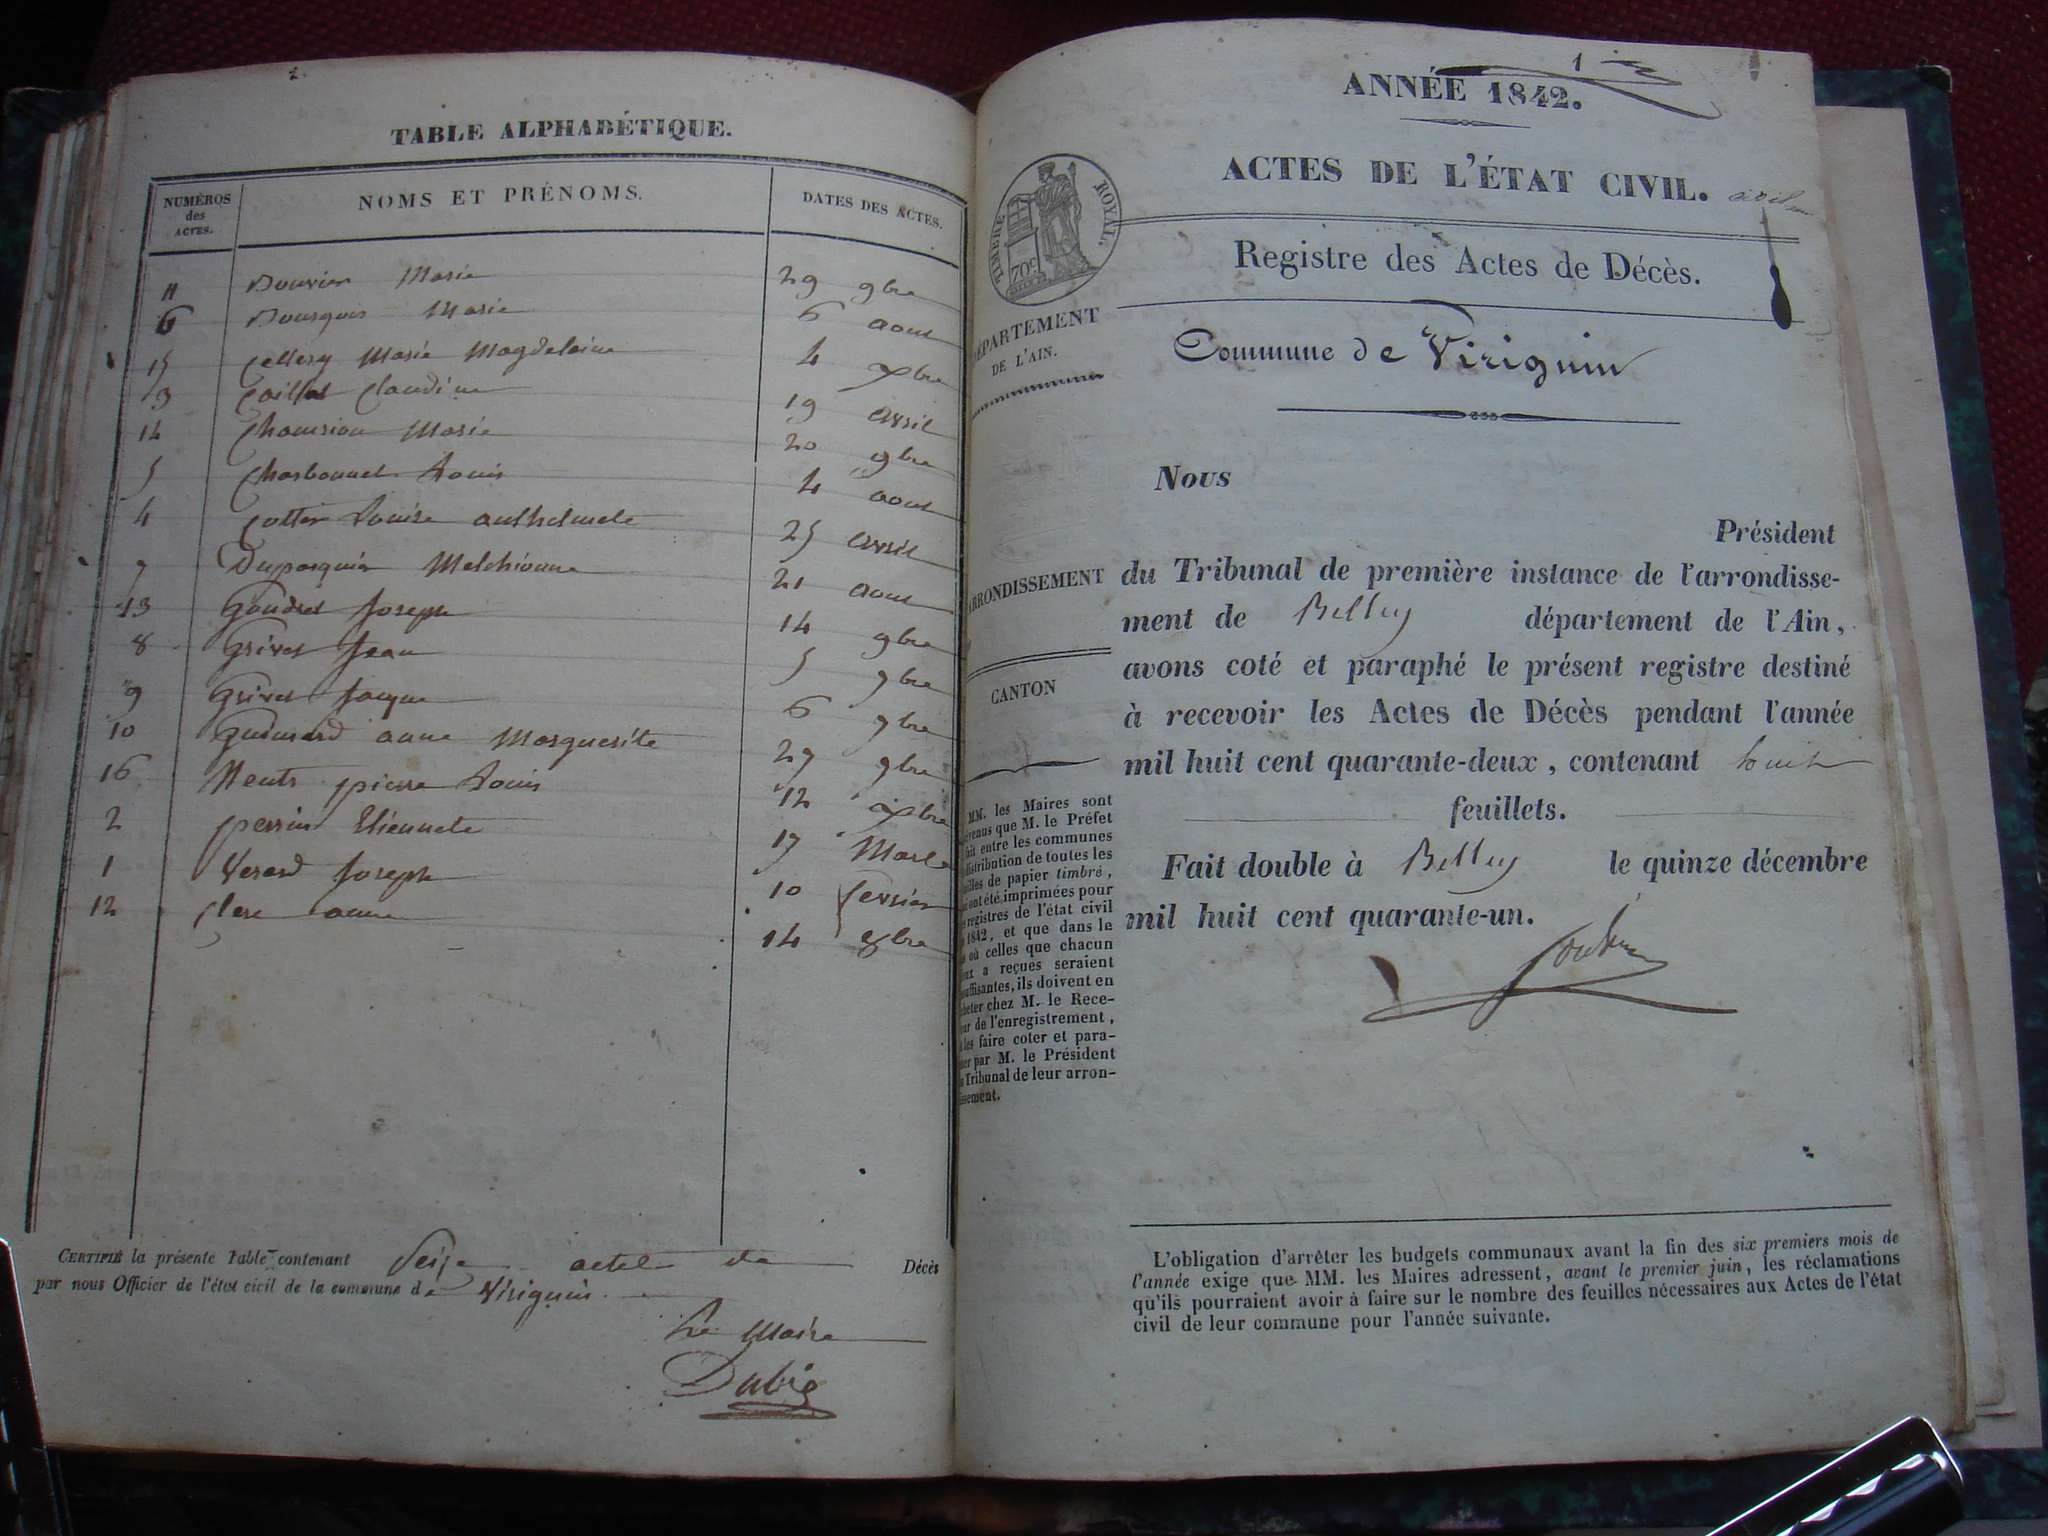 TABLE ALPHABÉTIQUE.
NUMÉROS des ACTES. NOMS ET PRÉNOMS. DATES DES ACTES.
11 Bouvier Marie 29 9bre
6 Bourgois Marie 6 aout
15 Cellery Marie Magdelaine 4 xbre
3 Caillat Claudine 19 avril
14 Chamrion Marie 20 9bre
5 Charbonnet Louis 4 aout
4 Cottin Louise anthelmete 25 avril
7 Dupasquier Melchionne 21 aout
13 Goudret Joseph 14 9bre
8 Grivet Jean 5 9bre
9 Grivet Jacque 6 9bre
10 anne Marguerite 27 9bre
16 pierre Louis 12 xbre
2 perrin Etiennete 17 Mars
1 Verard Joseph 10 fevrier
12 Clerc anne 14 8bre
CERTIFIÉ la présente Table contenant Seize actes de Décès
par nous Officier de l'état civil de la commune de Virignin.
Le Maire
Dubie
1
ANNÉE 1842.
ACTES DE L'ÉTAT CIVIL. civil
TIMBRE ROYAL.
70c
Registre des Actes de Décès.
DÉPARTEMENT
DE L'AIN.
Commune de Virignin
ARRONDISSEMENT
CANTON
MM. les Maires sont
venus que M. le Préfet
fait entre les communes
distribution de toutes les
illes de papier timbré,
ont été imprimées pour
registres de l'état civil
1842, et que dans le
où celles que chacun
eux a reçues seraient
uffisantes, ils doivent en
heter chez M. le Rece-
ur de l'enregistrement,
les faire coter et para-
her par M. le Président
Tribunal de leur arron-
issement.
Nous
Président
du Tribunal de première instance de l'arrondisse-
ment de Belley département de l'Ain,
avons coté et paraphé le présent registre destiné
à recevoir les Actes de Décès pendant l'année
mil huit cent quarante-deux, contenant huit
feuillets.
Fait double à Belley le quinze décembre
mil huit cent quarante-un.
L'obligation d'arrêter les budgets communaux avant la fin des six premiers mois de
l'année exige que MM. les Maires adressent, avant le premier juin, les réclamations
qu'ils pourraient avoir à faire sur le nombre des feuilles nécessaires aux Actes de l'état
civil de leur commune pour l'année suivante.